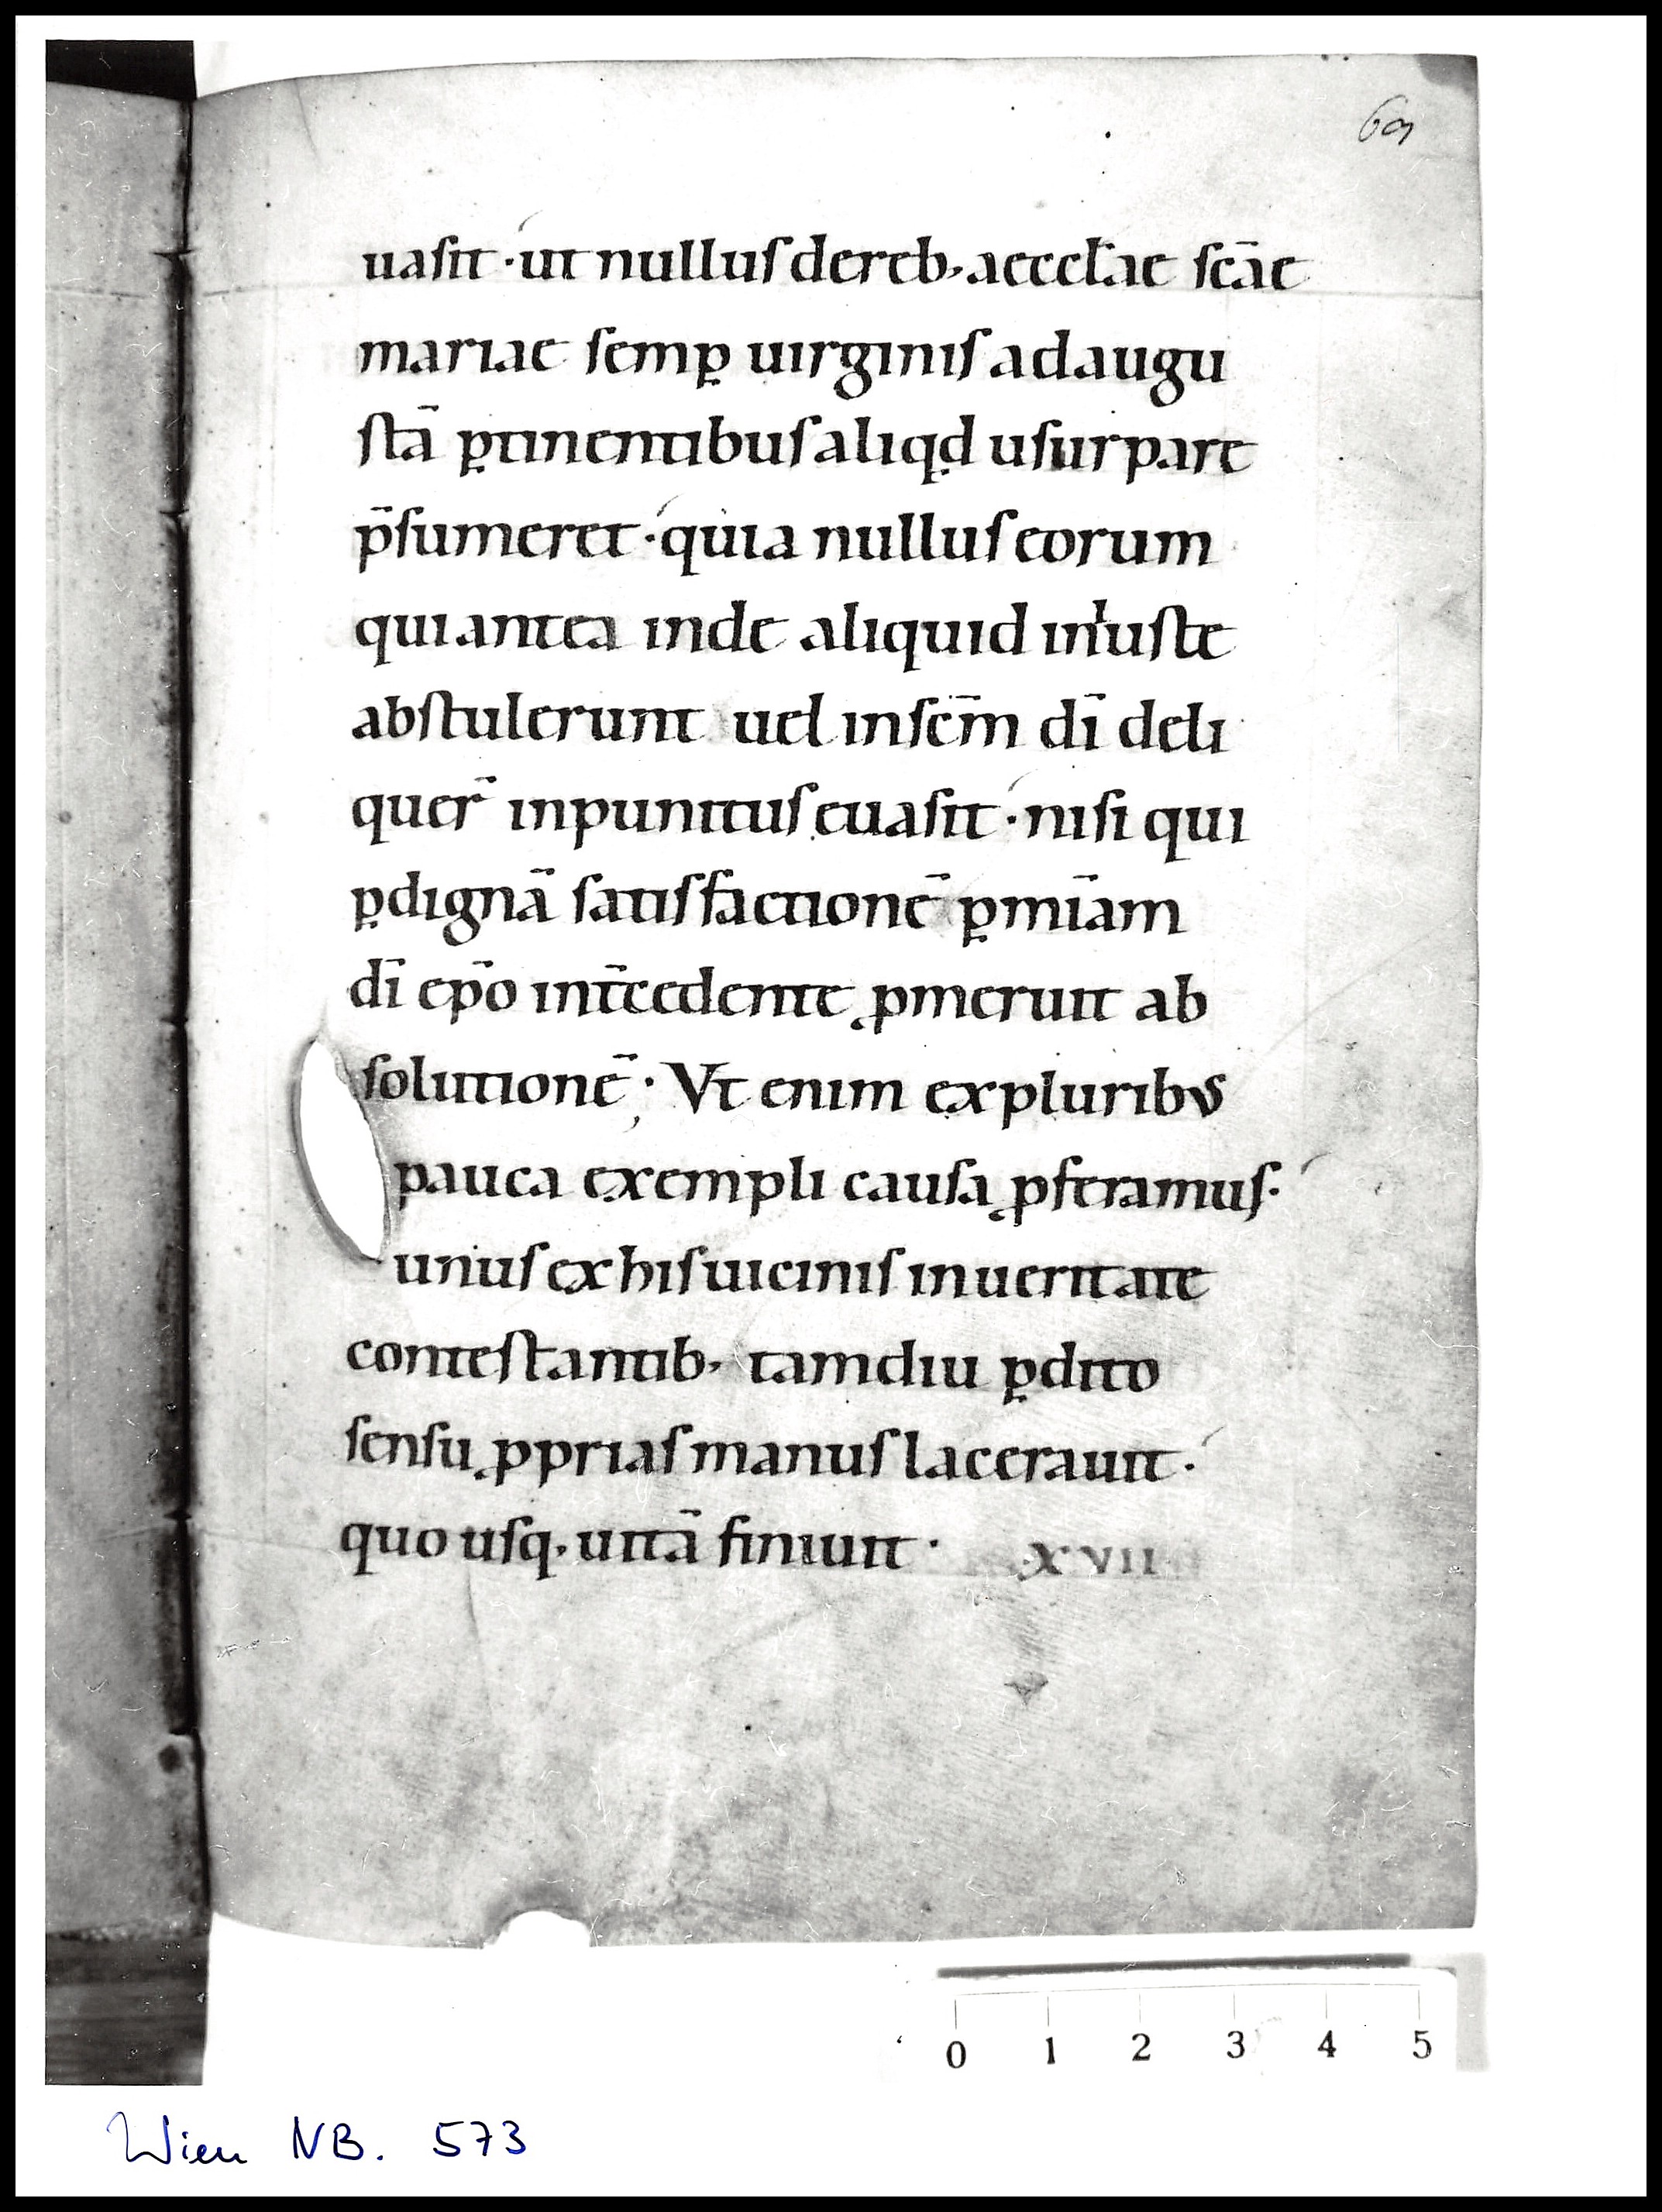 69
uasit · ut nullus dereb· aeccl̄ae sc̄ae
mariae semꝑ uirginis adaugu
stā ꝑtinentibus aliqd usurpare
p̄sumeret · quia nullus eorum
qui antea inde aliquid iniuste
abstulerunt uel insc̄m dī deli
quer̄ inpunitus euasit · nisi qui
ꝑdignā satisfactionē ꝑmīam
dī ep̄o int̄cedente ꝓmeruit ab
solutionē ; Vt enim expluribus
pauca exempli causa ꝓferamus ·
unius ex his uicinis inueritate
contestantib· tamdiu ꝑdito
sensu ꝓprias manus lacerauit ·
quo usq· uitā finiuit ·
XVII
0 1 2 3 4 5
Wien NB. 573